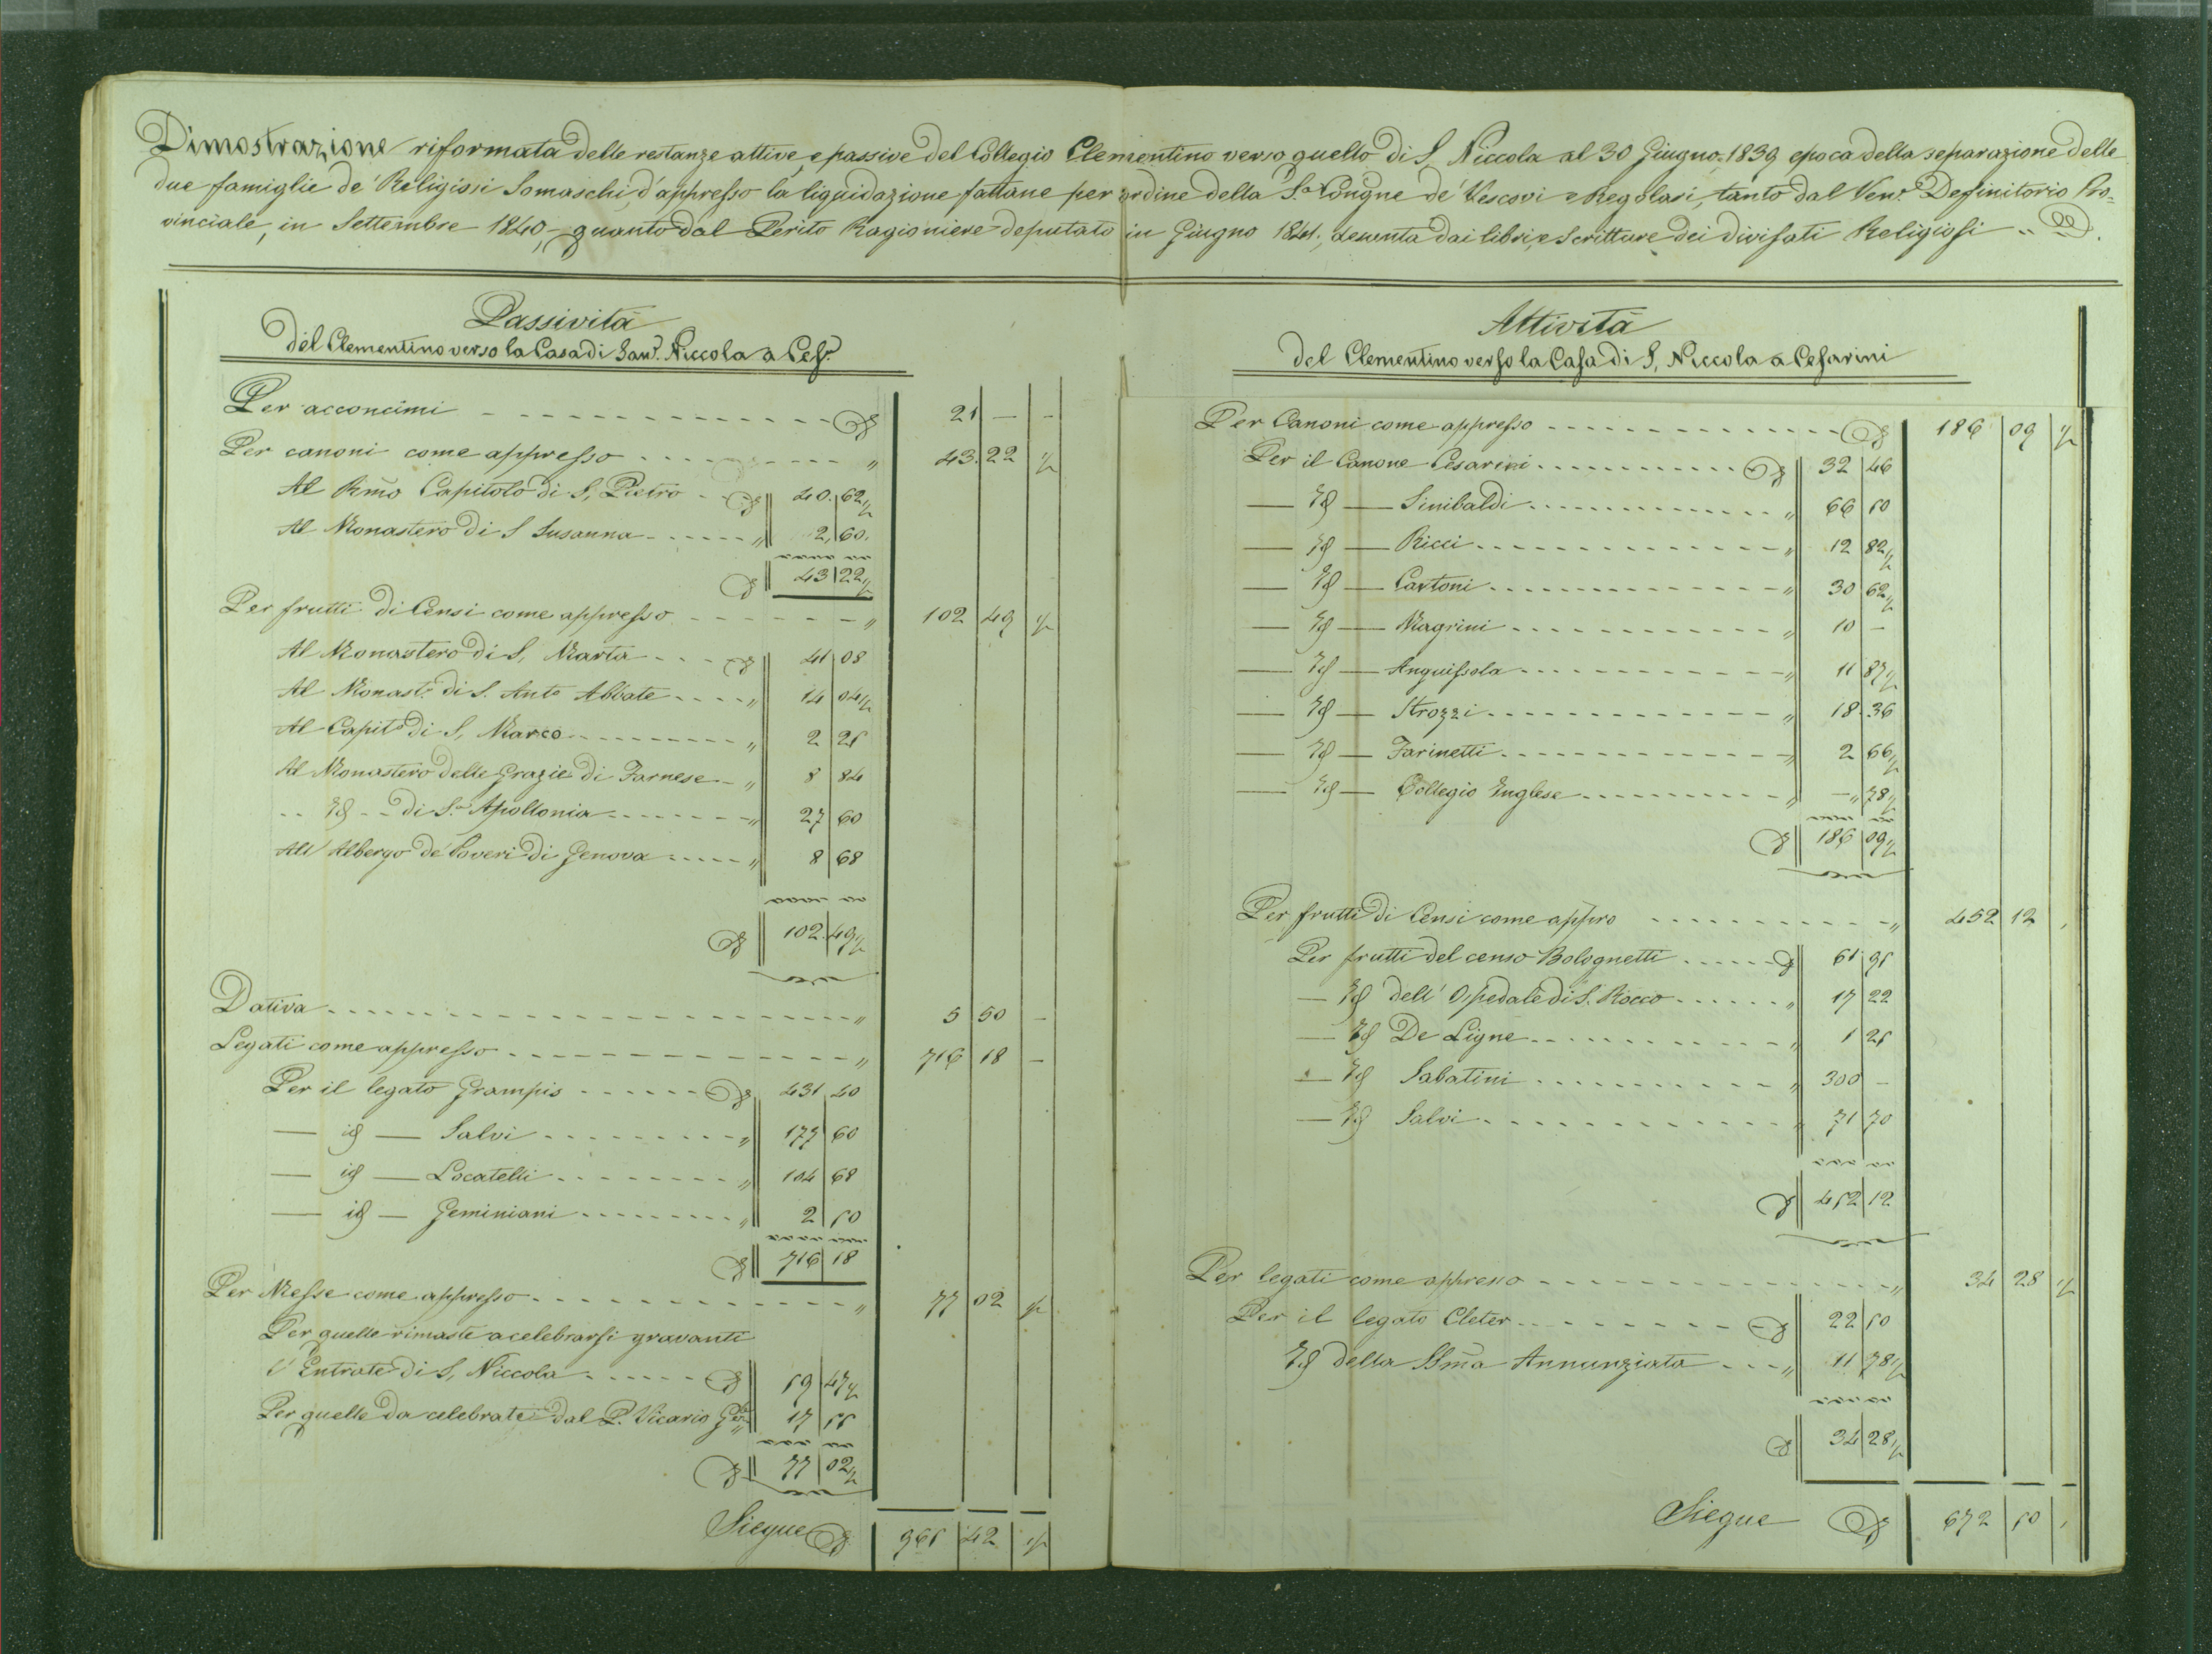 Dimostrazione riformata delle restanze attive, e passive del Collegio Clementino verso quello di S. Niccola al 30 Giugno 1839 epoca della separazione delle
due famiglie de' Religiosi Somaschi, d'appresso la liquidazione fattane per ordine della S.a Congne de' Vescovi e Regolari, tanto dal Ven.e Definitorio Pro=
vinciale, in Settembre 1840, quanto dal Perito Ragioniere deputato in Giugno 1841, desunta dai libri, e Scritture dei divisati Religiosi
Passività
del Clementino verso la Casa di San. Niccola a Ces.
Per acconcimi 21 — —
Per canoni come appresso 43. 22 ½
Al Rmo Capitolo di S. Pietro 40. 62½
Al Monastero di S Susanna 2. 60.
43 22½
Per frutti di Censi come appresso 102 49 ½
Al Monastero di S. Marta 41 08
Al Monast.o di S. Anto Abbate 14 04½
Al Capit.o di S. Marco 2 25
Al Monastero delle Grazie di Farnese 8 84
Id di S.a Apollonia 27 60
All' Albergo de' Poveri di Genova 8 68
102. 49½
Dativa 5 50 —
Legati come appresso 716 18 —
Per il legato Grampis 431 40
— id — Salvi 177 60
— id — Locatelli 104 68
— id — Geminiani 2 50
716 18
Per Messe come appresso 77 02 ½
Per quelle rimaste a celebrarsi gravanti
l'Entrate di S. Niccola 59 47½
Per quelle da celebrate dal P. Vicario Gle 17 55
77 02½
Siegue 965 42 ½
Attività
del Clementino verso la Casa di S. Niccola a Cesarini
Per Canoni come appresso 186 09 ½
Per il Canone Cesarini 32 46
— Id — Sinibaldi 66 50
— Id — Ricci 12 82½
— Id — Cartoni 30 62½
— Id — Magrini 10 —
— Id — Anguissola 11 87½
— Id — Strozzi 18. 36
— Id — Farinetti 2 66½
— Id — Collegio Inglese — 78½
186 09½
Per frutti di Censi come appro 452 12
Per frutti del censo Bolognetti 61 95
— Id dell' Ospedale di S. Rocco 17 22
— Id De Ligne 1 25
— Id Sabatini 300 —
— Id Salvi 71 70
452 12
Per legati come appresso 34 28 ½
Per il legato Cleter 22 50
Id della SSma Annunziata 11 78½
34 28½
Siegue 672 50